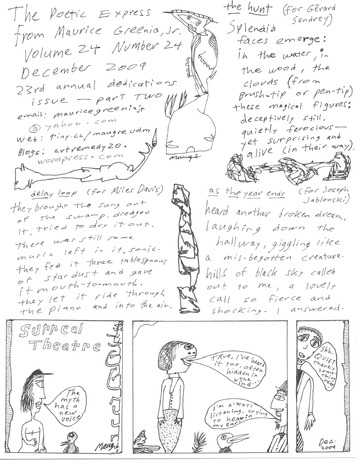 The Poetic Express
from Maurice Greenia, Jr.
Volume 24 Number 24
December 2009
23rd annual dedications
issue — part two
email: mauricegreeniajr
@yahoo.com
web: tiny.cc/maugre.udm
Blogs: artremedy20.
wordpress.com
Maugré
the hunt (for Gérard
Sendrey)
Splendid
faces emerge:
in the water, in
the wood, the
clouds (from
brush-tip or pen-tip)
these magical figures:
deceptively still,
quietly ferocious—
yet surprising and
alive (in their way).
delay loop (for Miles Davis)
they brought the song out
of the swamp. dredged
it, tried to dry it out.
there was still some
music left in it, sonic.
they fed it three tablespoons
of stardust and gave
it mouth-to-mouth.
they let it ride through
the piano and into the air.
as the year ends (for Joseph
Jablonski)
heard another broken dream,
laughing down the
hallway, giggling like
a mis-begotten creature.
hills of black sky called
out to me, a lovely
call so fierce and
shocking. I answered.
Surreal
Theatre
The
myth
has a
new
voice
Maugré
True, I've heard
it too, often
hidden in
the
I'm always
listening, trying
to hear
my
Shh.
Quiet
Dec.
2009